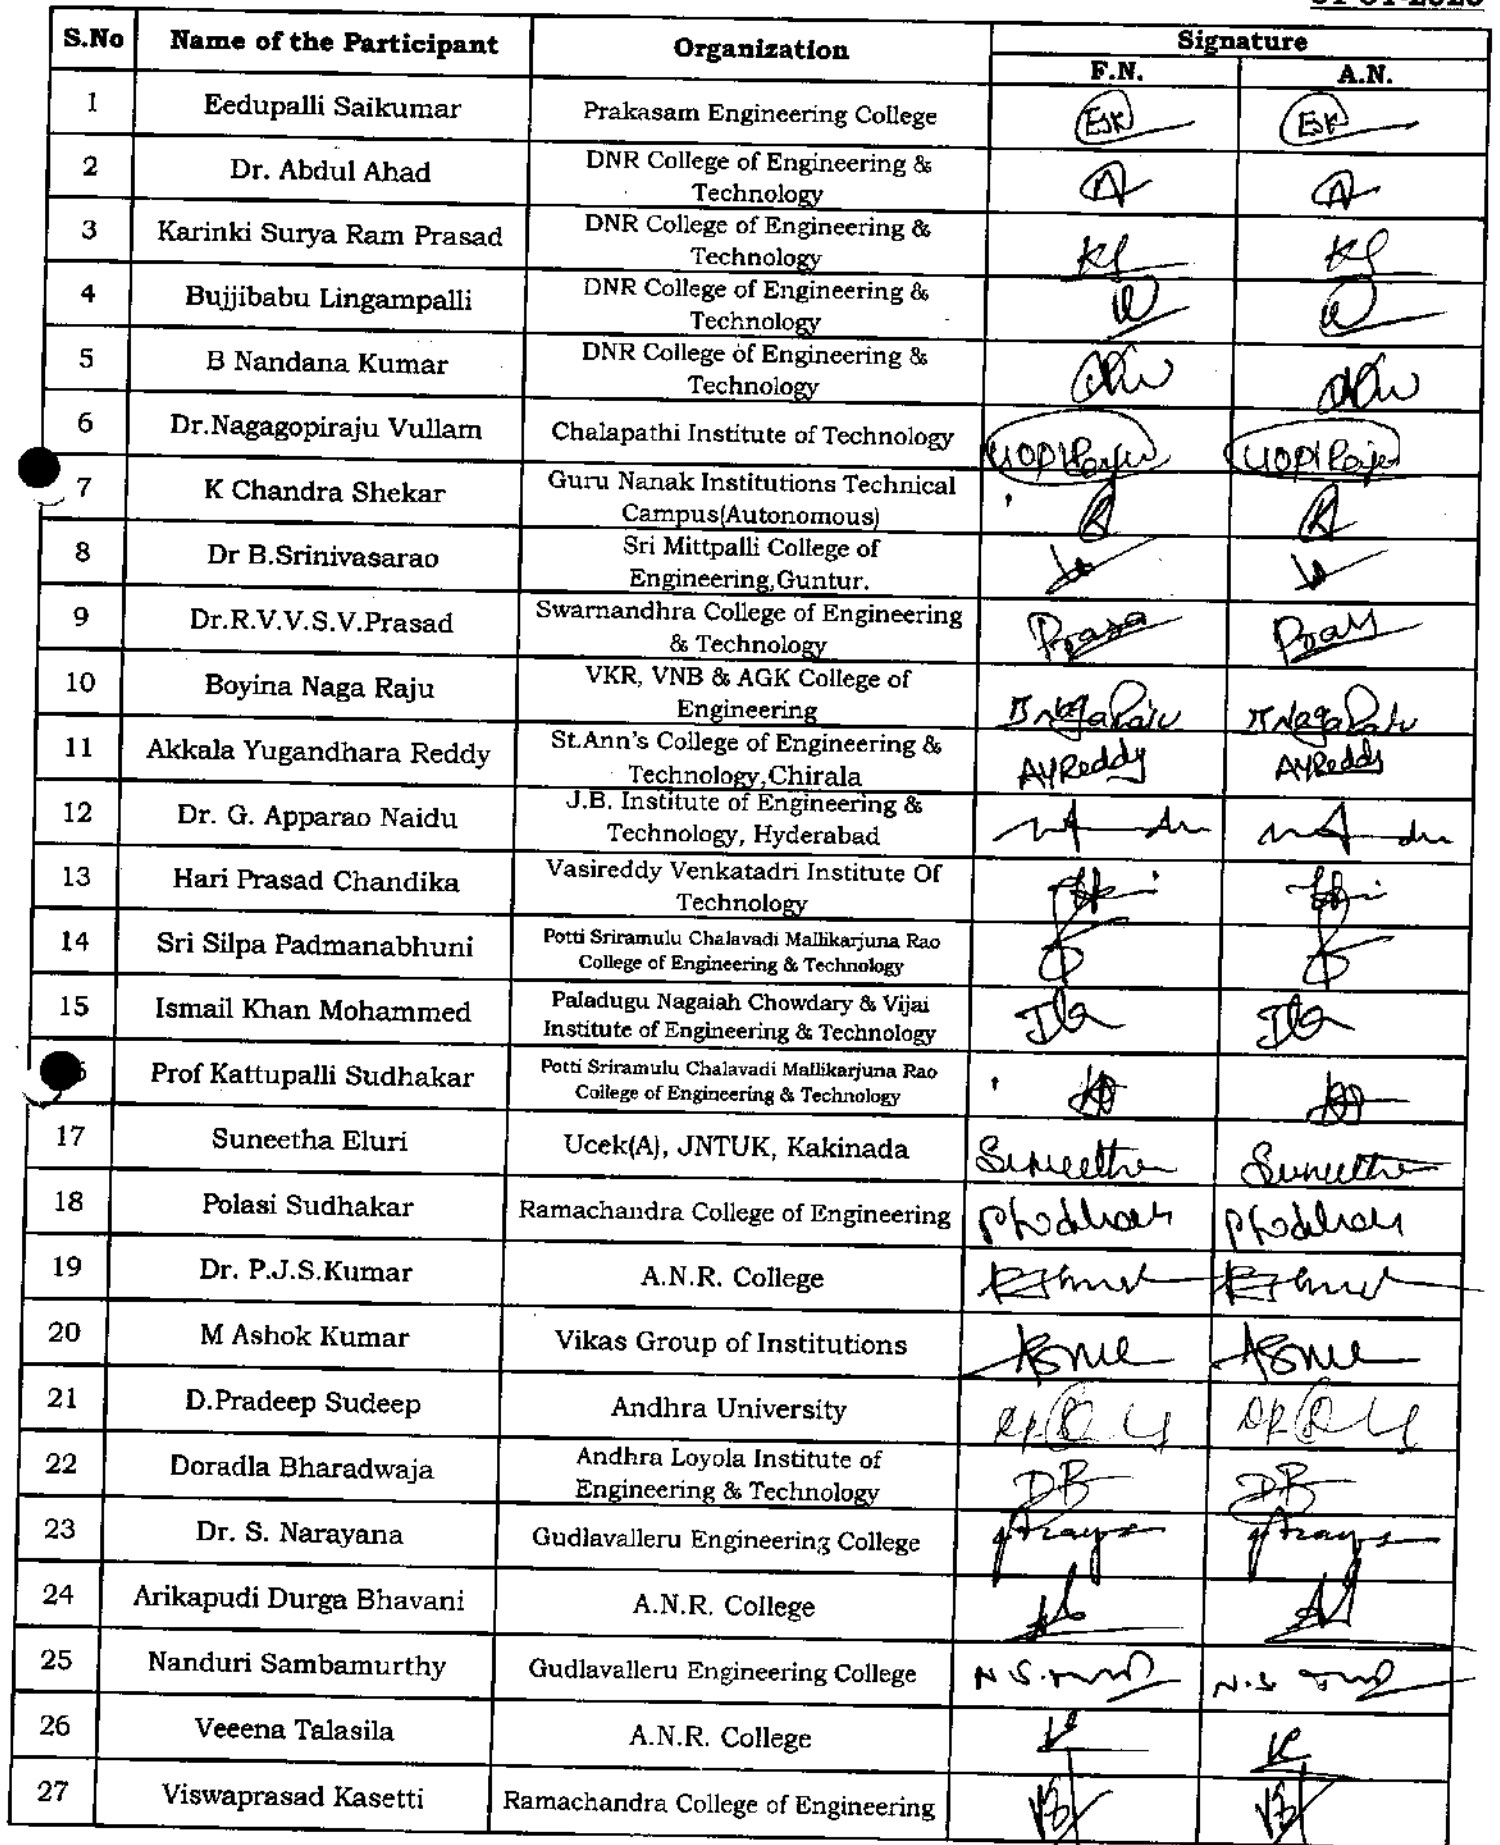 S.No Name of the Participant Organization Signature
F.N. A.N.
1 Eedupalli Saikumar Prakasam Engineering College ESK ESK
2 Dr. Abdul Ahad DNR College of Engineering &
Technology
3 Karinki Surya Ram Prasad DNR College of Engineering &
Technology
4 Bujjibabu Lingampalli DNR College of Engineering &
Technology
5 B Nandana Kumar DNR College of Engineering &
Technology
6 Dr.Nagagopiraju Vullam Chalapathi Institute of Technology
7 K Chandra Shekar Guru Nanak Institutions Technical
Campus(Autonomous)
8 Dr B.Srinivasarao Sri Mittpalli College of
Engineering,Guntur.
9 Dr.R.V.V.S.V.Prasad Swarnandhra College of Engineering
& Technology
10 Boyina Naga Raju VKR, VNB & AGK College of
Engineering
11 Akkala Yugandhara Reddy St.Ann's College of Engineering &
Technology,Chirala AYReddy AYReddy
12 Dr. G. Apparao Naidu J.B. Institute of Engineering &
Technology, Hyderabad
13 Hari Prasad Chandika Vasireddy Venkatadri Institute Of
Technology
14 Sri Silpa Padmanabhuni Potti Sriramulu Chalavadi Mallikarjuna Rao
College of Engineering & Technology
15 Ismail Khan Mohammed Paladugu Nagaiah Chowdary & Vijai
Institute of Engineering & Technology
Prof Kattupalli Sudhakar Potti Sriramulu Chalavadi Mallikarjuna Rao
College of Engineering & Technology
17 Suneetha Eluri Ucek(A), JNTUK, Kakinada
18 Polasi Sudhakar Ramachandra College of Engineering
19 Dr. P.J.S.Kumar A.N.R. College
20 M Ashok Kumar Vikas Group of Institutions
21 D.Pradeep Sudeep Andhra University
22 Doradla Bharadwaja Andhra Loyola Institute of
Engineering & Technology DB DB
23 Dr. S. Narayana Gudlavalleru Engineering College
24 Arikapudi Durga Bhavani A.N.R. College
25 Nanduri Sambamurthy Gudlavalleru Engineering College
26 Veeena Talasila A.N.R. College
27 Viswaprasad Kasetti Ramachandra College of Engineering